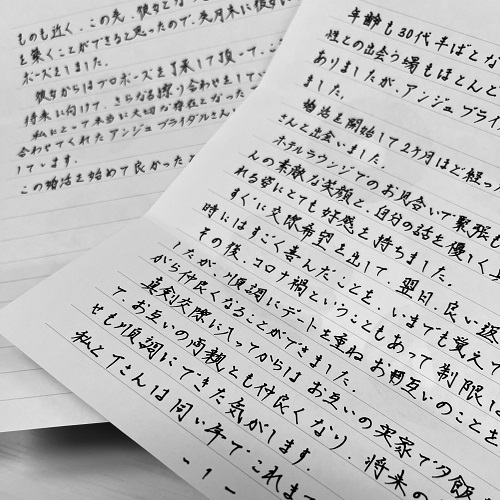 年齢も30代半ばとな
性との出会う場もほとんど
ありましたが、アンジュブライ
ました。
婚活を開始して2ケ月ほど経っ
さんと出会いました。
ホテルラウンジでのお見合いで緊張も
んの素敵な笑顔と、自分の話を優しく
れる姿にとても好感を持ちました。
すぐに交際希望を出して、翌日、良い返
時にはすごく喜んだことを、いまでも覚えて
その後、コロナ禍ということもあって制限
したが、順調にデートを重ねお互いのことを
がら仲良くなることができました。
真剣交際に入ってからはお互いの実家で夕飯
て、お互いの両親とも仲良くなり、将来の
せも順調にできた気がします。
私とTさんは同い年でこれまっ
- 1 -
ものも近く、この先、彼女とな
を築くことができると思ったので、先月末に彼女に
ポーズをしました。
彼女からはプロポーズを了承して頂って、こ
将来に向けて、さらなる擦り合わせをしてい
私にとって本当に大切な存在となった
合わせてくれたアンジュブライダルさん
しています。
この婚活を始めて良かったと